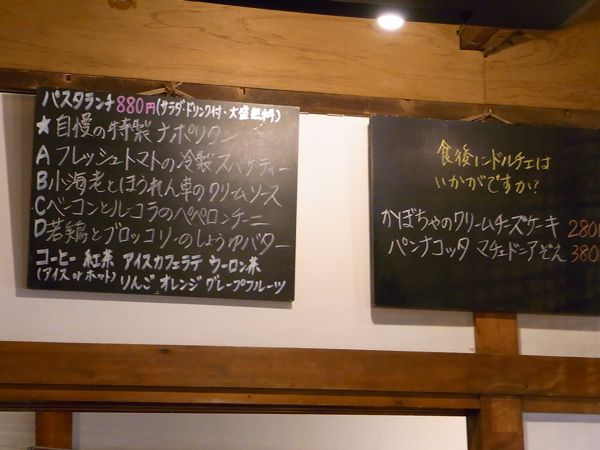 パスタランチ880円(サラダ・ドリンク付・大盛無料)
★自慢の特製ナポリタン
Aフレッシュトマトの冷製スパゲティー
B小海老とほうれん草のクリームソース
Cベーコンとルーコラのペペロンチーニ
D若鶏とブロッコリーのしょうゆバター
コーヒー 紅茶 アイスカフェラテ ウーロン茶
(アイスorホット) りんご オレンジ グレープフルーツ
食後にドルチェは
いかがですか?
かぼちゃのクリームチーズケーキ 280
パンナコッタ マチェドニアぞえ 380